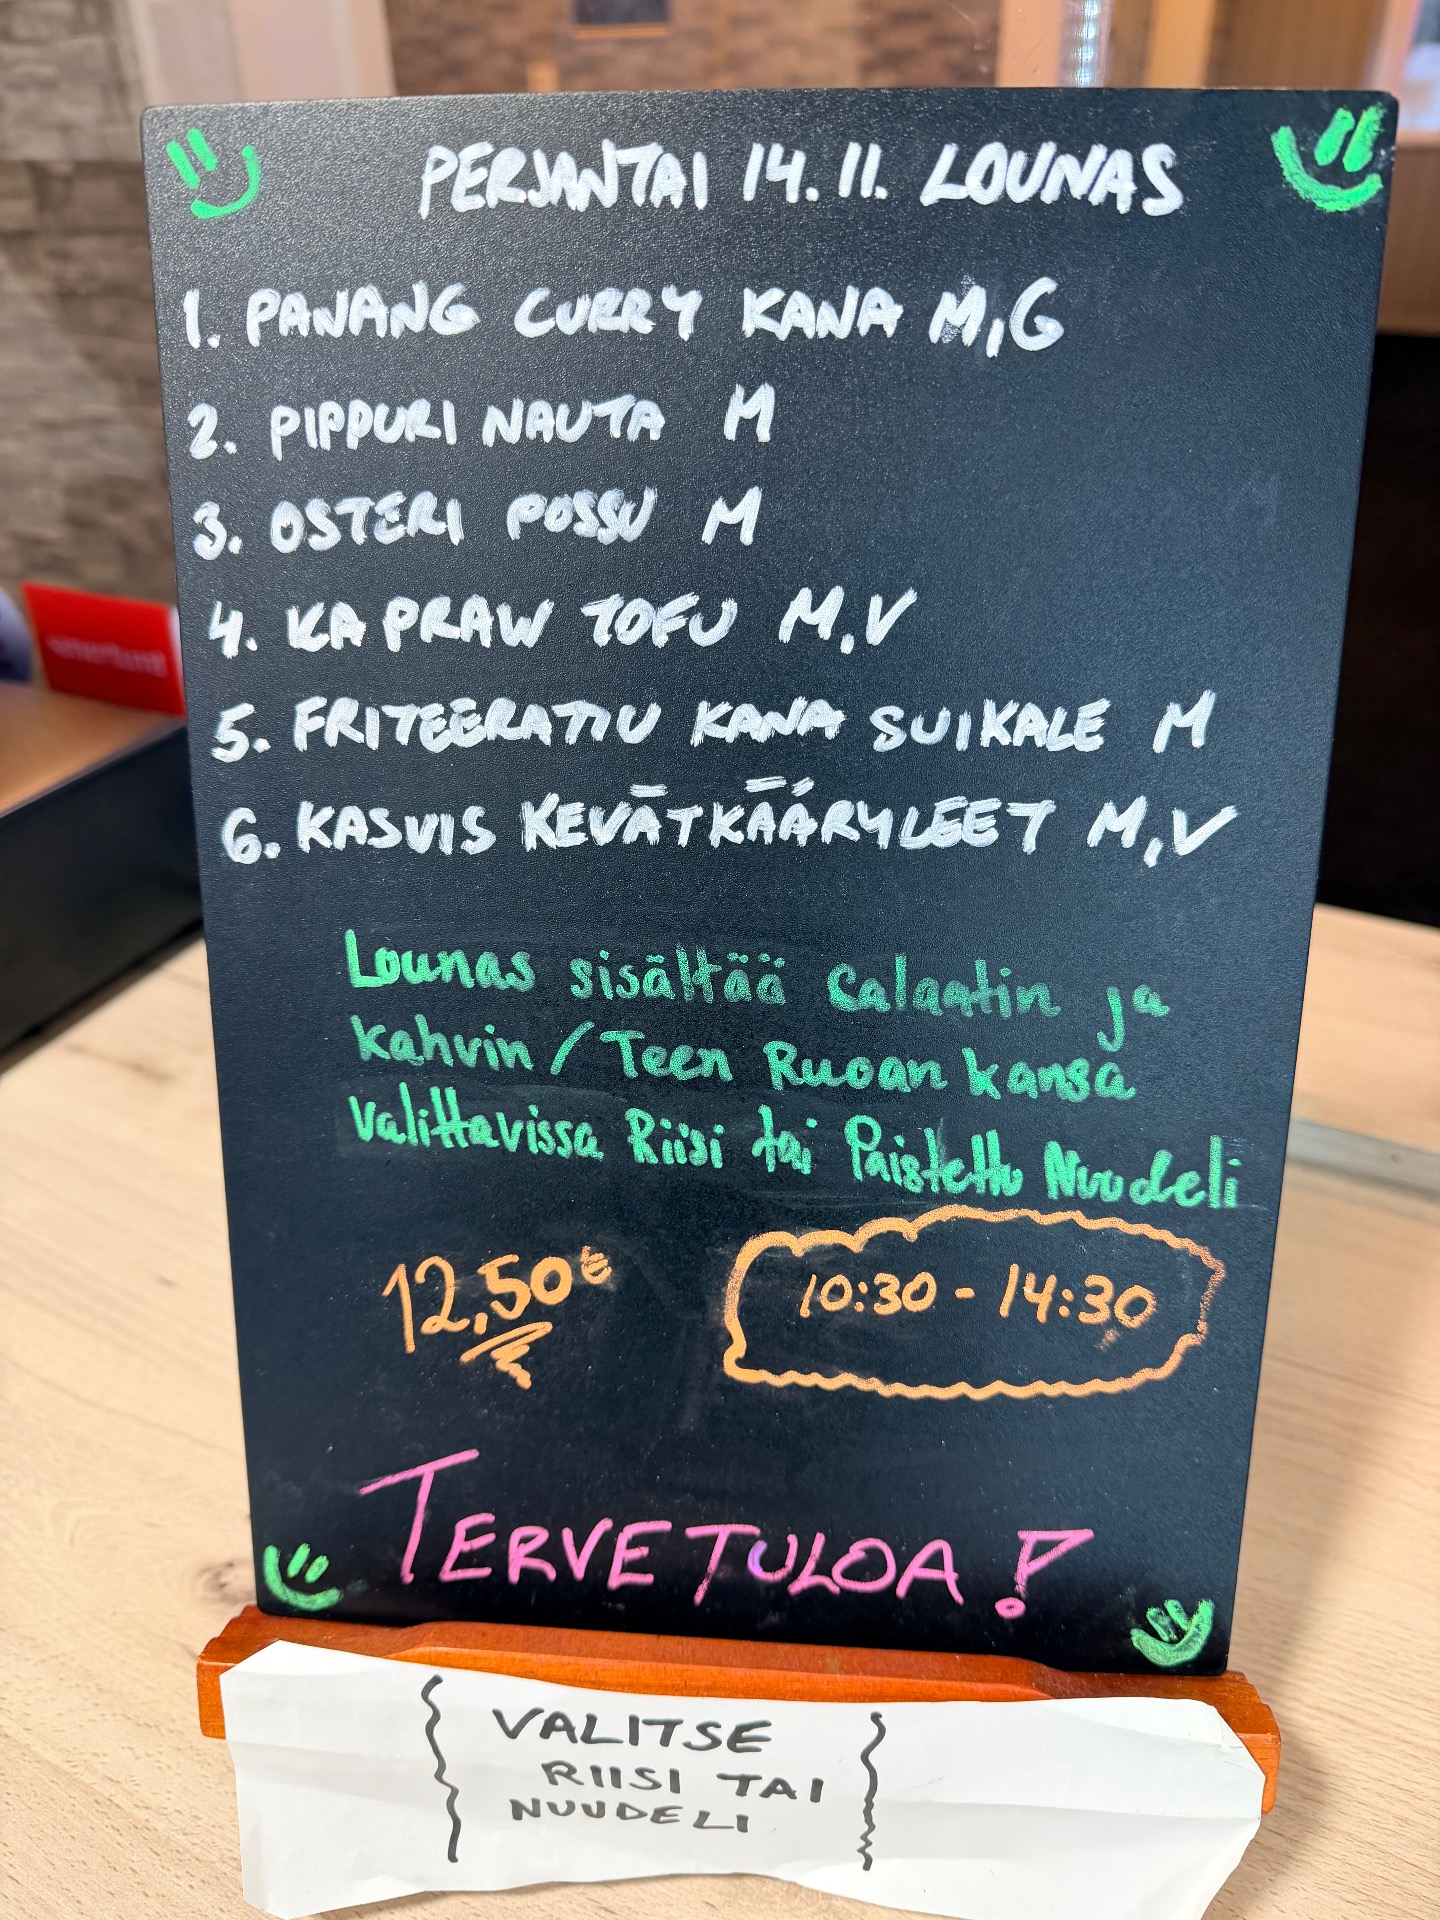 PERJANTAI 14.11. LOUNAS
1. PANANG CURRY KANA M,G
2. PIPPURI NAUTA M
3. OSTERI POSSU M
4. KA PRAW TOFU M,V
5. FRITEERATTU KANA SUIKALE M
6. KASVIS KEVÄTKÄÄRYLEET M,V
Lounas sisältää Calaatin ja
kahvin / Teen Ruoan kansa
valittavissa Riisi tai Paistettu Nuudeli
12,50€
10:30 - 14:30
TERVETULOA!
VALITSE
RIISI TAI
NUUDELI